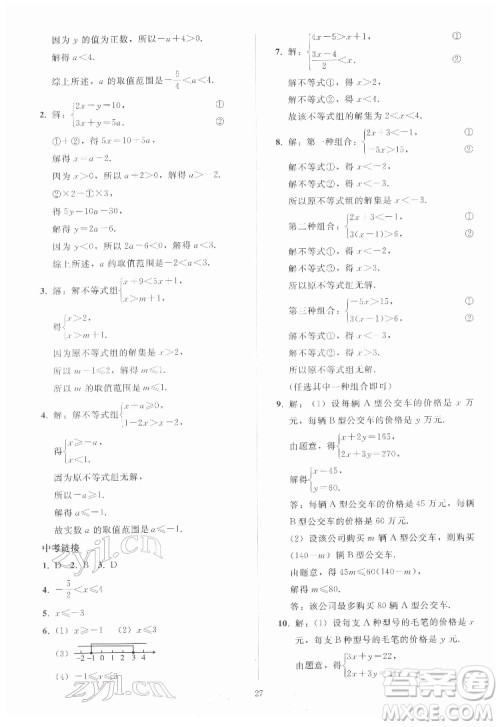 因为 y 的值为正数，所以 −a+4>0.
解得 a<4.
综上所述，a 的取值范围是 −5/4<a<4.
2. 解：{2x−y=10， ①
3x+y=5a. ②
①+②，得 5x=10+5a.
解得 x=a+2.
因为 x>0，所以 a+2>0，解得 a>−2.
②×2−①×3，
得 5y=10a−30.
解得 y=2a−6.
因为 y>0，所以 2a−6>0，解得 a>3.
综上所述，a 的取值范围是 a>3.
3. 解：解不等式组{x+9<5x+1，
x>m+1，
得{x>2，
x>m+1.
因为原不等式组的解集是 x>2，
所以 m+1≤2，解得 m≤1.
所以 m 的取值范围是 m≤1.
4. 解：解不等式组{x+a≥0，
1−2x>x−2，
得{x≥−a，
x<1.
因为原不等式组无解，
所以−a≥1. 解得 a≤−1.
故实数 a 的取值范围是 a≤−1.
中考链接
1. D 2. B 3. D
4. −5/2<x≤4
5. x≤−3
6. （1）x≥−1 （2）x≤4
（3）
−2 −1 0 1 2 3 4 5
（4）−1≤x≤4
7. 解：{4x−5>x+1， ①
3x−4/2<x. ②
解不等式①，得 x>2.
解不等式②，得 x<4.
故该不等式组的解集为 2<x<4.
8. 解：第一种组合：{2x+3<−1， ①
−5x>15. ②
解不等式①，得 x<−2.
解不等式②，得 x<−3.
所以原不等式组的解集为 x<−3.
第二种组合：{2x+3<−1， ①
3(x−1)>6. ②
解不等式①，得 x<−2.
解不等式②，得 x>3.
所以原不等式组无解.
第三种组合：{−5x>15， ①
3(x−1)>6. ②
解不等式①，得 x<−3.
解不等式②，得 x>3.
所以原不等式组无解.
（任选其中一种组合即可）
9. 解：（1）设每辆 A 型公交车的价格是 x 万
元，每辆 B 型公交车的价格是 y 万元.
由题意，得{x+y=105，
2x+3y=270.
解得{x=45，
y=60.
答：每辆 A 型公交车的价格为 45 万元，每辆
B 型公交车的价格为 60 万元.
（2）设该公司购买 m 辆 A 型公交车，则购
由题意，得
解得
答：该公司最多购买 80 辆 A 型公交车.
10. 解：（1）设每支 A 种型号的毛笔的价格为 x
元，每支 B 种型号的毛笔的价格为 y 元.
由题意，得{3x+y=22，
27
zyjl.cn
答案圈